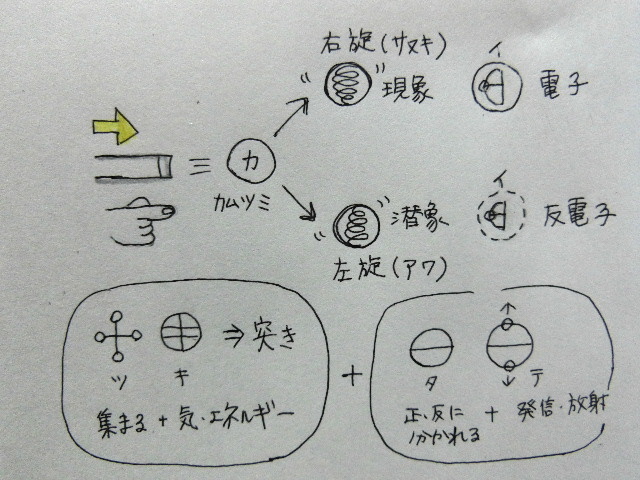 右旋(サヌキ)
現象
イ
電子
カ
カムツミ
潜象
イ
反電子
左旋(アワ)
ツ
キ
⇒突き
集まる + 気・エネルギー
+
タ
テ
正、反に
分かれる
+ 発信・放射